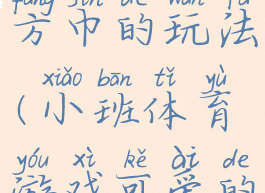 fāng jīn de wán fǎ
方巾的玩法
xiǎo bān tǐ yù
(小班体育
yóu xì kě ài de
游戏可爱的